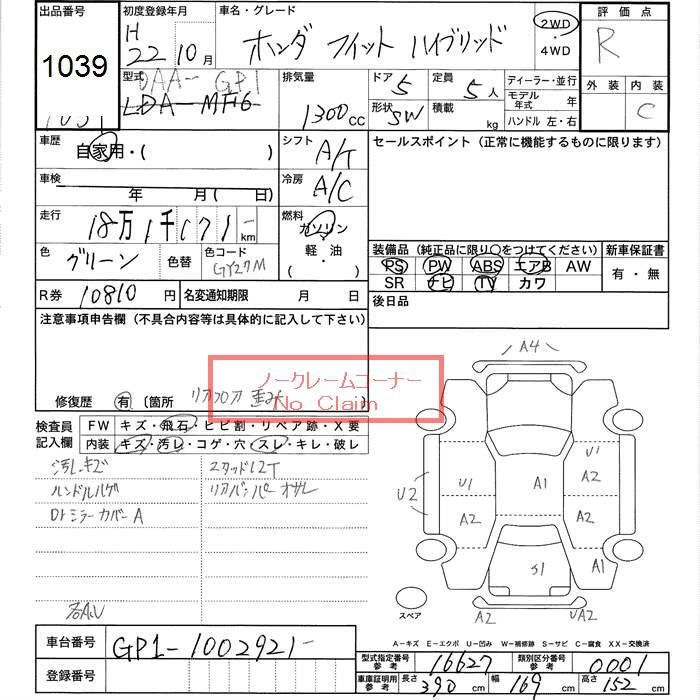 出品番号 初度登録年月 車名・グレード 評価点
1039 H 22年10月 ホンダ フィット ハイブリッド 2WD・4WD R
型式 DAA- GP1 排気量 1300cc ドア 5 定員 5人 ディーラー・並行 外装 内装
LDA-MF6 形状 SW 積載 kg モデル年式 年 C
ハンドル 左・右
車歴 自家用・( ) シフト A/T セールスポイント(正常に機能するものに限ります)
車検 年 月(日) 冷房 A/C
走行 18万1千171-km 燃料 ガソリン・軽・油・( )
色 グリーン 色替 色コード GY27M 装備品(純正品に限り○をつけてください) 新車保証書
PS PW ABS エアB AW 有・無
SR ナビ TV カワ
R券 10810円 名変通知期限 月 日 後日品
注意事項申告欄(不具合内容等は具体的に記入して下さい)
ノークレームコーナー
No Claim
修復歴 有(箇所 リアフロア )
検査員記入欄 FW キズ・飛石・ヒビ割・リペア跡・X要
内装 キズ・汚レ・コゲ・穴・スレ・キレ・破レ
汚レキズ スタッド12T
ハンドルハゲ リアバンパーオサレ
Dトミラーカバー A
各A.U
A4
U1
U2 U1 A1 A2
A2 A2
S1 A1
スペア A2 UA2
A-キズ E-エクボ U-凹み W-補修跡 S-サビ C-腐食 XX-交換済
車台番号 GP1-1002921-
登録番号
型式指定番号 参考 16627 類別区分番号 参考 0001
車庫証明用 参考 長さ 390cm 幅 169cm 高さ 152cm